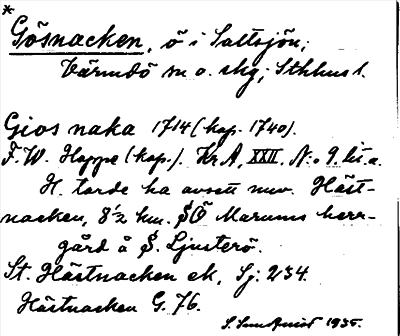 *
Gösnacken, ö i Saltsjön;
Värmdö m o. skg; Sthlms l.
Gios naka 1714 (kop. 1740).
F. W. Hoppe (kop.). Kr A, XXII, N:o 9 lit a.
H. torde ha avsett nuv. Häst-
nacken, 8½ km. SÖ Marums herr-
gård å S. Ljusterö.
St. Hästnacken ek, Sj. 234.
Hästnacken G. 76.
1935.